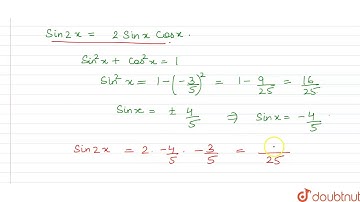 Sin2x = 2 Sinx Cosx.
Sin²x + Cos²x = 1
Sin²x = 1-(-3/5)² = 1 - 9/25 = 16/25
Sinx = ± 4/5 ⇒ Sinx = -4/5.
Sin2x = 2. -4/5 . -3/5 = /25
doubtnut